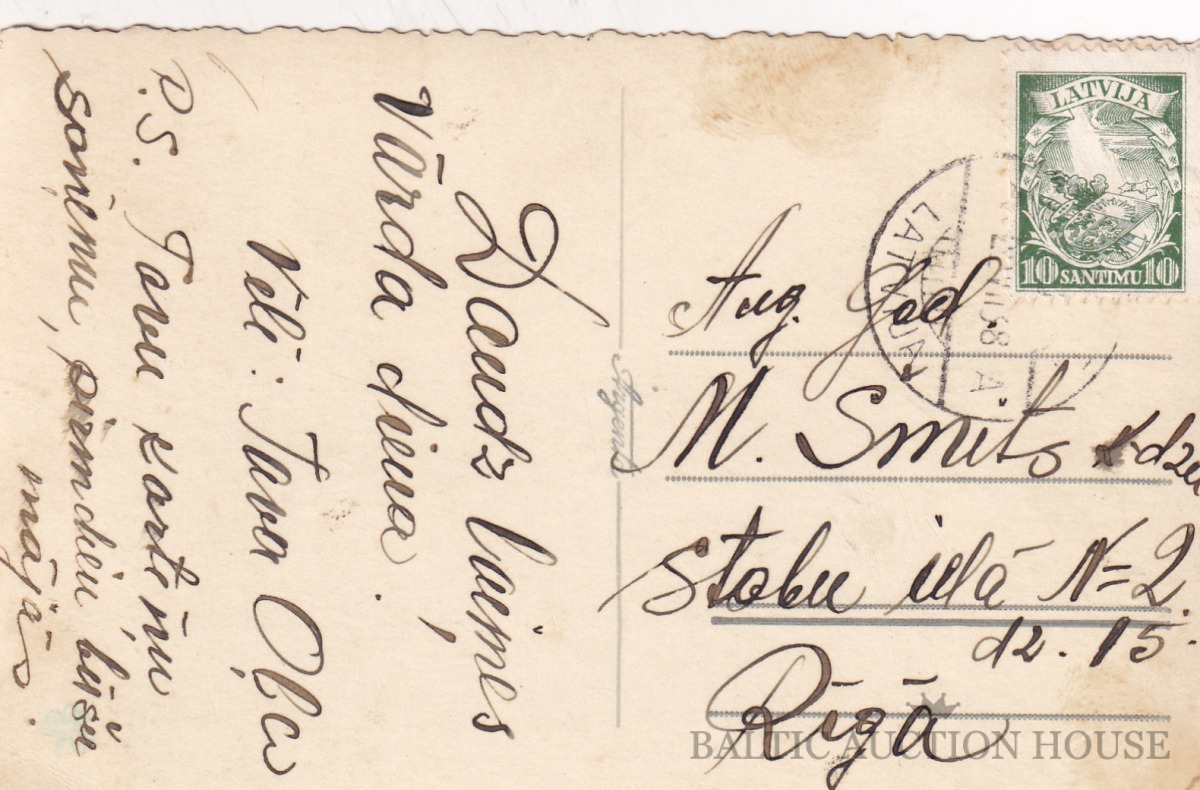 Daudz laimes
Vārda dienā.
Vēl: Tava Oļa
P.S. Tavu kartiņu
saņēmu, pirmdien būšu
mājās.
Argenta
LATVIJA
10 SANTIMU 10
LATVIJA
38 A
Aug. God.
M. Šmits k-dze
Stabu ielā N=2.
dz. 15.
Rīgā
BALTIC AUCTION HOUSE